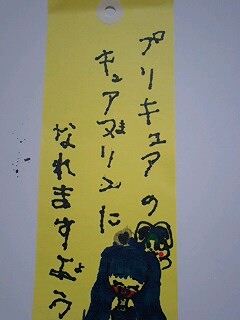 プリキュアの
キュアマリンに
なれますよう